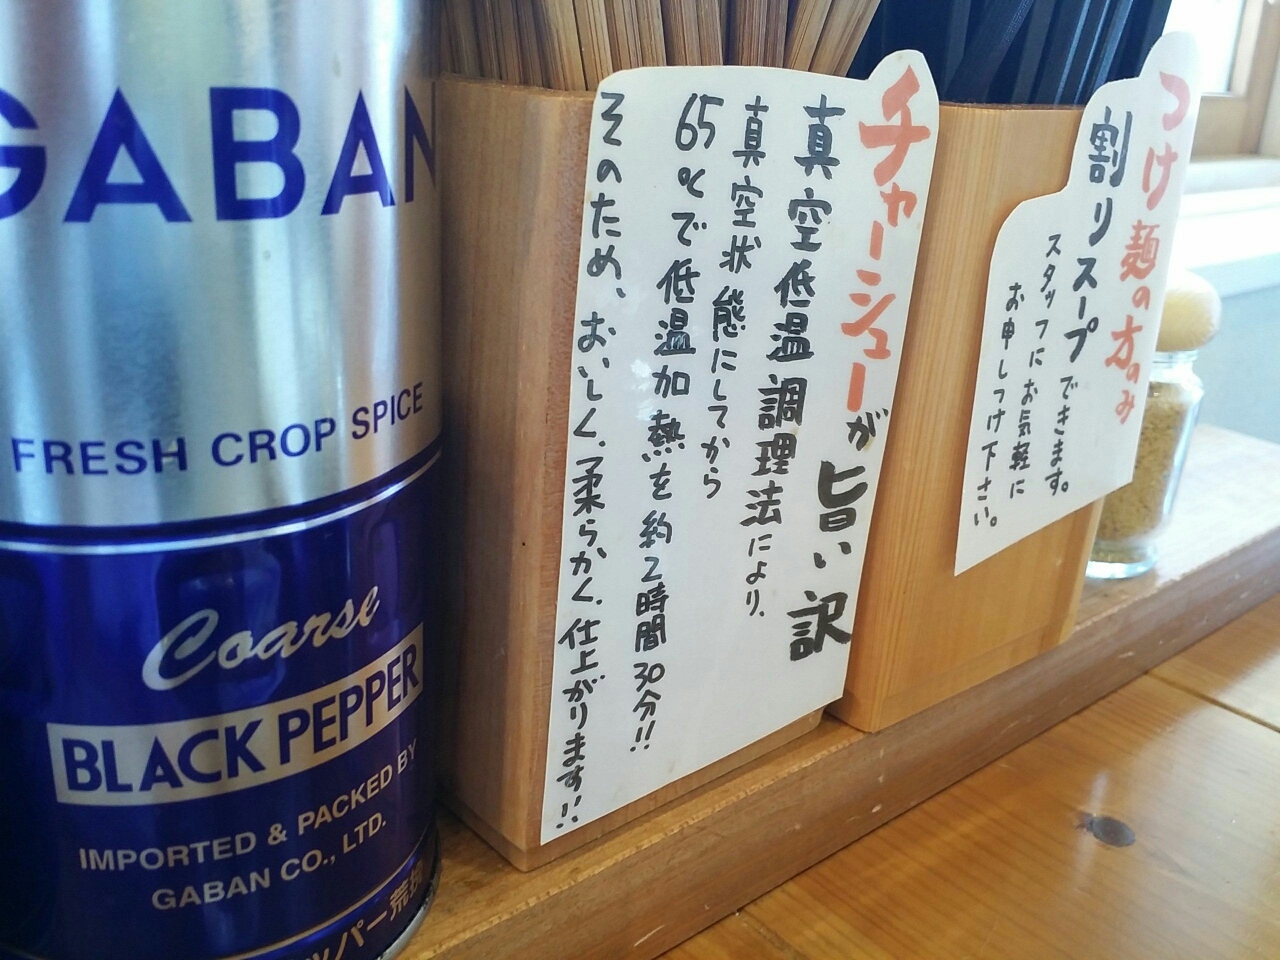 GABAN
FRESH CROP SPICE
Coarse
BLACK PEPPER
IMPORTED & PACKED BY
GABAN CO., LTD.
チャーシューが旨い訳
真空低温調理法により、
真空状態にしてから
65℃で低温加熱を約2時間30分!!
そのため、おいしく、柔らかく、仕上がります!!
つけ麺の方のみ
割りスープできます。
スタッフにお気軽に
お申しつけ下さい。